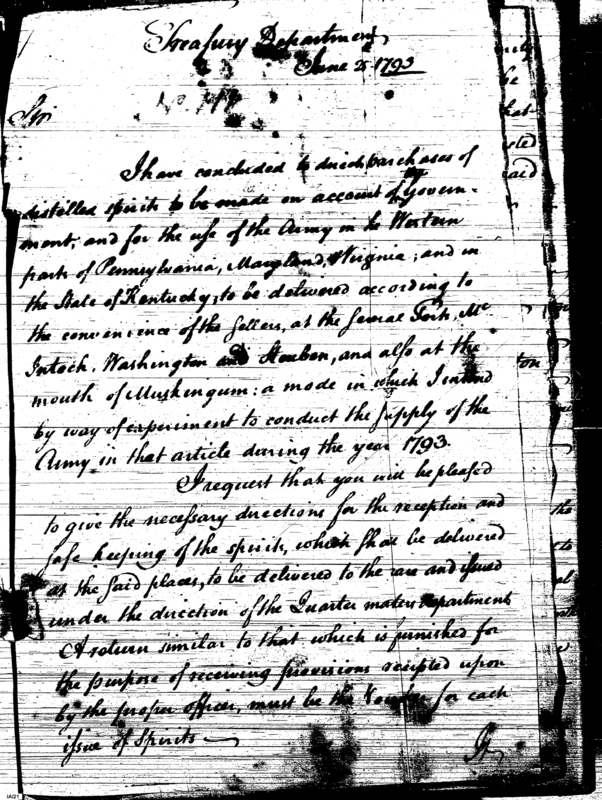 Treasury Department
June 25 1793
Sir
I have concluded to direct purchases of
distilled spirits to be made on account of Govern-
ment, and for the use of the Army in the Western
parts of Pennsylvania, Maryland, Virginia; and in
the State of Kentucky, to be delivered according to
the convenience of the Sellers, at the several Forts, Mc
Intosh, Washington and Steuben, and also at the
mouth of Muskingum: a mode in which I intend
by way of experiment to conduct the supply of the
Army in that article during the year 1793.
I request that you will be pleased
to give the necessary directions for the reception and
safe keeping of the spirits, which shall be delivered
at the said places, to be delivered to the care and issued
under the direction of the Quarter masters department
A return similar to that which is furnished for
the purpose of receiving provisions receipted upon
by the proper officer, must be the Voucher for each
issue of Spirits
It
ton